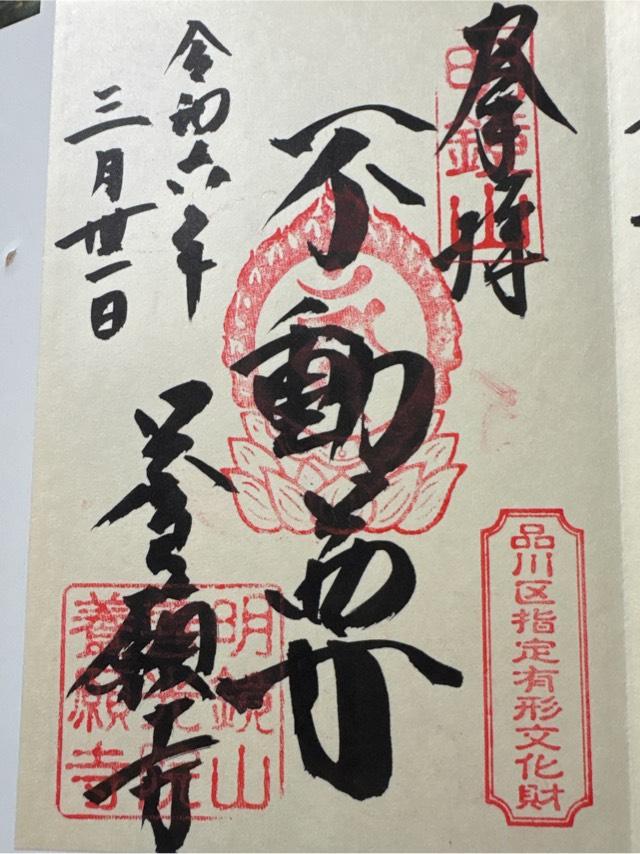 奉拝
明鏡山
不動尊
品川区指定有形文化財
令和六年
三月廿一日
養願寺
明鏡山
善光院
養願寺